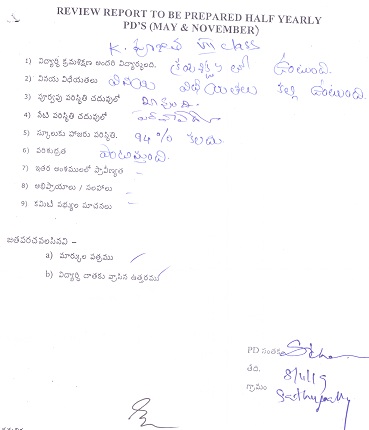 REVIEW REPORT TO BE PREPARED HALF YEARLY
PD'S (MAY & NOVEMBER)
K. VII class
1) విద్యార్థి క్రమశిక్షణ అందరి విద్యార్థులలో. క్రమశిక్షణ తో ఉంటుంది.
2) వినయ విధేయతలు వినయ విధేయతలు కల్గి ఉంటుంది.
3) పూర్వపు పరిస్థితి చదువులో
4) నేటి పరిస్థితి చదువులో
5) స్కూలుకు హాజరు పరిస్థితి. 94% కలదు
6) పరిశుభ్రత పాటిస్తుంది.
7) ఇతర అంశములలో ప్రావీణ్యత –
8) అభిప్రాయాలు / సలహాలు –
9) కమిటీ సభ్యుల సూచనలు –
జతపరచవలసినవి –
a) మార్కుల పత్రము
b) విద్యార్థి దాతకు వ్రాసిన ఉత్తరము
PD సంతకం
తేది. 8/11/19
గ్రామం Sathupally